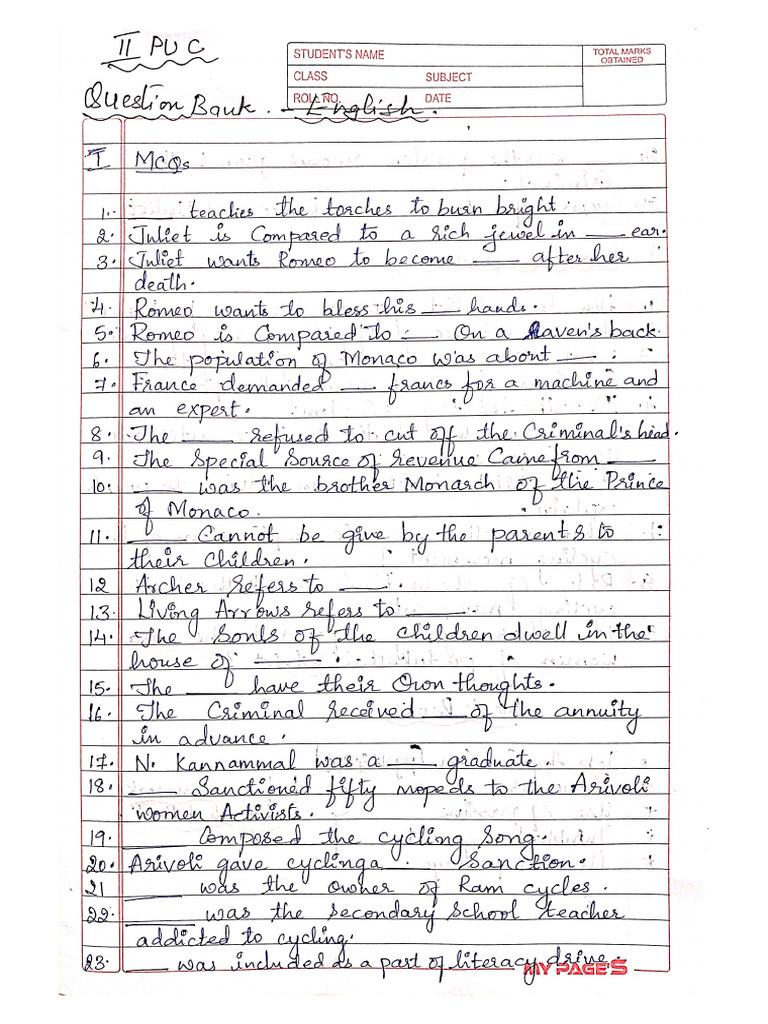 II PUC
STUDENT'S NAME
TOTAL MARKS
OBTAINED
CLASS SUBJECT
ROLL NO. DATE
Question Bank. - English.
I MCQs
1. ____ teaches the torches to burn bright
2. Juliet is Compared to a rich jewel in ____ ear.
3. Juliet wants Romeo to become ____ after her
death.
4. Romeo wants to bless his ____ hands.
5. Romeo is Compared to ____ On a Raven's back
6. The population of Monaco was about ____.
7. France demanded ____ francs for a machine and
an expert.
8. The ____ refused to cut off the Criminal's head.
9. The Special Source of revenue Came from ____
10. ____ was the brother Monarch of the Prince
of Monaco.
11. ____ Cannot be give by the parents to
their children.
12 Archer refers to ____.
13. Living Arrows refers to ____.
14. The Souls of the children dwell in the
house of ____.
15. The ____ have their Own thoughts.
16. The Criminal received ____ of the annuity
in advance.
17. N. Kannammal was a ____ graduate.
18. ____ Sanctioned fifty mopeds to the Arivoli
women Activists.
19. ____ Composed the cycling Song.
20. Arivoli gave cycling a ____ Sanction.
21 ____ was the owner of Ram cycles.
22. ____ was the secondary School teacher
addicted to cycling.
23. ____ was included as a part of literacy drive.
MY PAGE'S